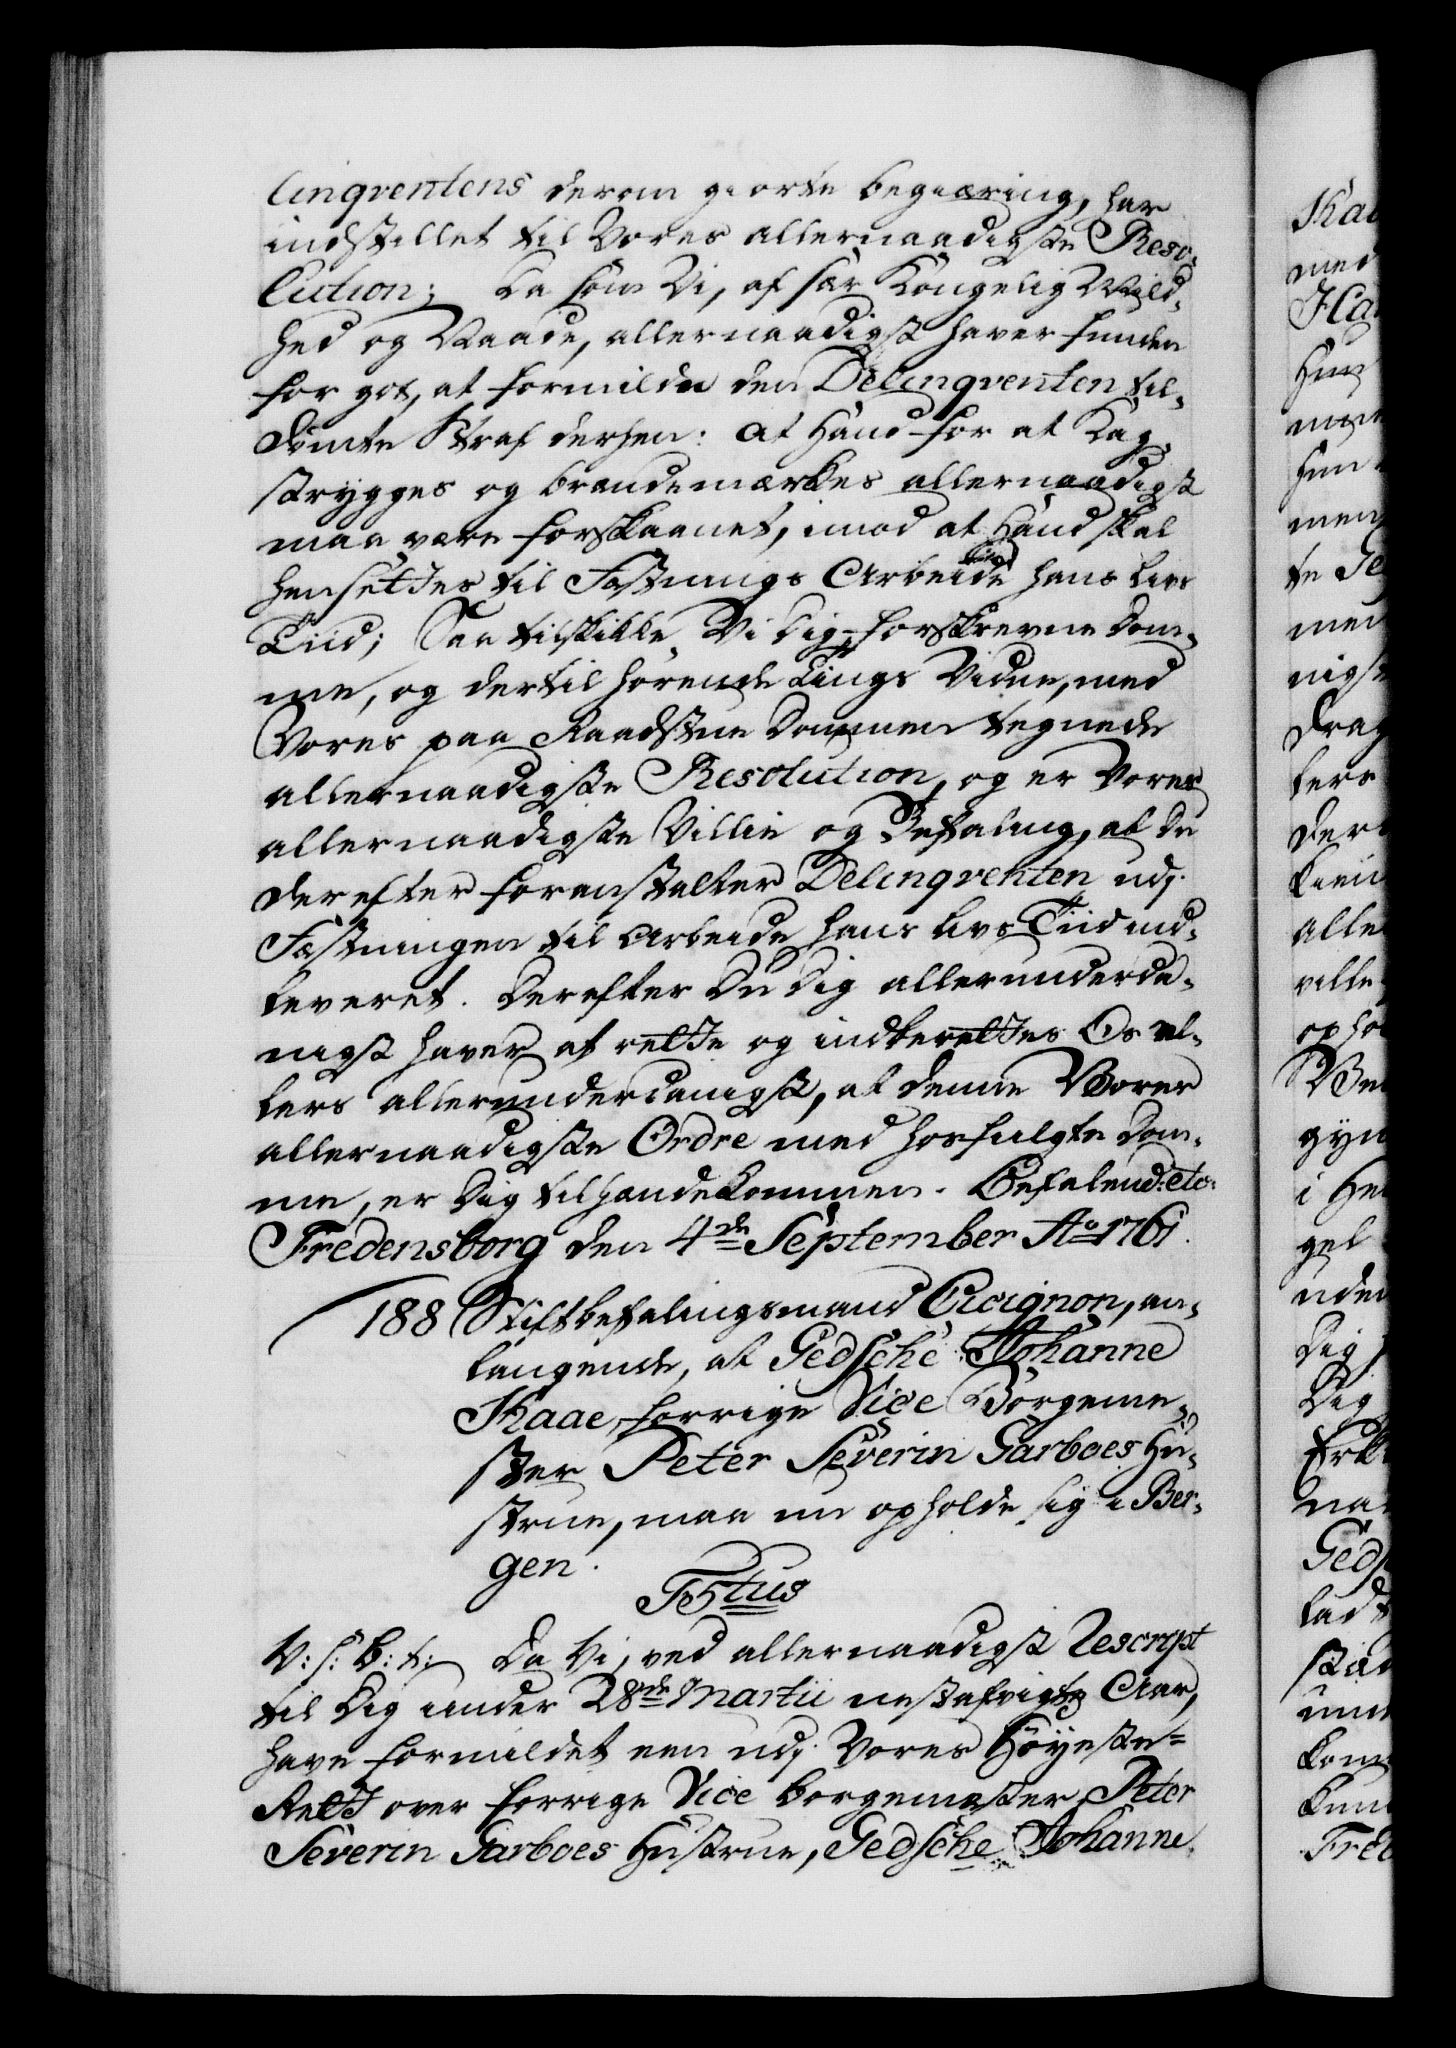 linqventens derom giorte begiæring, har
indstillet til Vores allernaadigste Reso-
lution; Da som Vi, af sær Kongelig Mild-
hed og Naade, allernaadigst haver funden
for got, at formilde den Delinqventen til-
dømte Straf derhen: at Hand for at Kag-
stryges og brændemærkes allernaadigst
maa være forskaanet, imod at Hand skal
hensettes til Fæstnings Arbeide i hans Livs
Tiid; Saa tilskikke Vi Dig forskrevne Dom-
me, og dertil hørende Tings Vidne, med
Vores paa Raadstue Dommen tegnede
allernaadigste Resolution, og er Vores
allernaadigste Villie og Befaling, at Du
derefter foranstalter Delinqventen udj
Fæstningen til Arbeide hans Livs Tiid ind-
leveret. Derefter Du Dig allerunderda-
nigst haver at rette og indberettes Os el-
lers allerunderdanigst, at denne Vores
allernaadigste Ordre med hosfulgte Dom-
me, er Dig tilhændekommen. Befalend: etc:
Fredensborg den 4de September Ao 1761.
188 Stiftbefalingsmand Cicignon, an-
langende, at Gedsche Johanne
Kaae, forrige Vice Borgeme-
ster Peter Severin Garboes Hu-
strue, maa nu opholde sig i Ber-
gen.
F5tus
V: s: B: t: Da Vi, ved allernaadigst Rescript
til Dig under 28de Martii nestafvigte Aar,
have formildet een udj Vores Høyeste-
Rett over forrige Vice borgemester Peter
Severin Garboes Hustrue, Gedsche Johanne